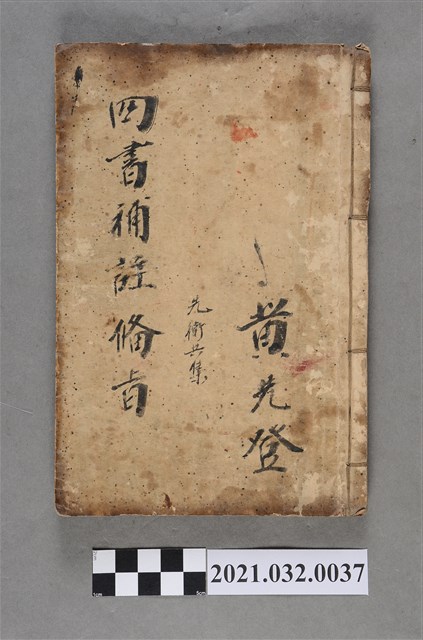 黄先登
先衛公集
四書補註備旨
2021.032.0037